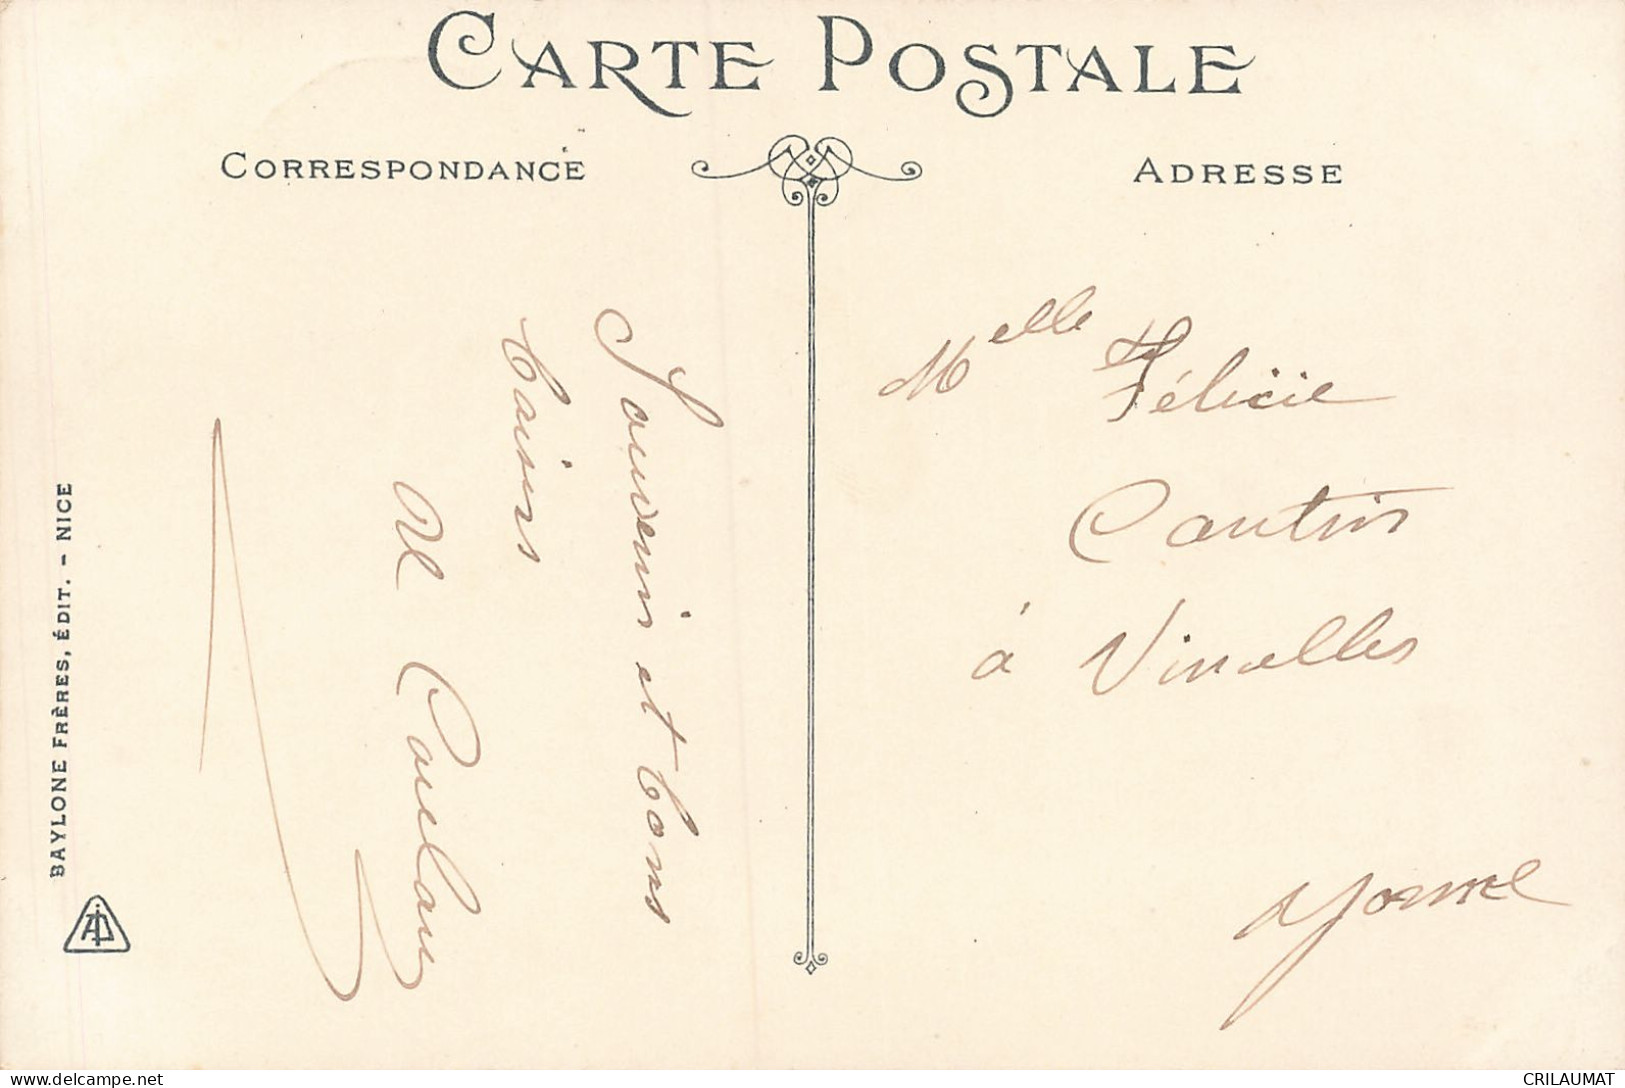 CARTE POSTALE
CORRESPONDANCE
ADRESSE
Souvenir et bons
baisers
Melle Félicie
à Vinelles
Yonne
BAYLONE FRÈRES, ÉDIT. - NICE
CRILAUMAT
https://www.delcampe.net